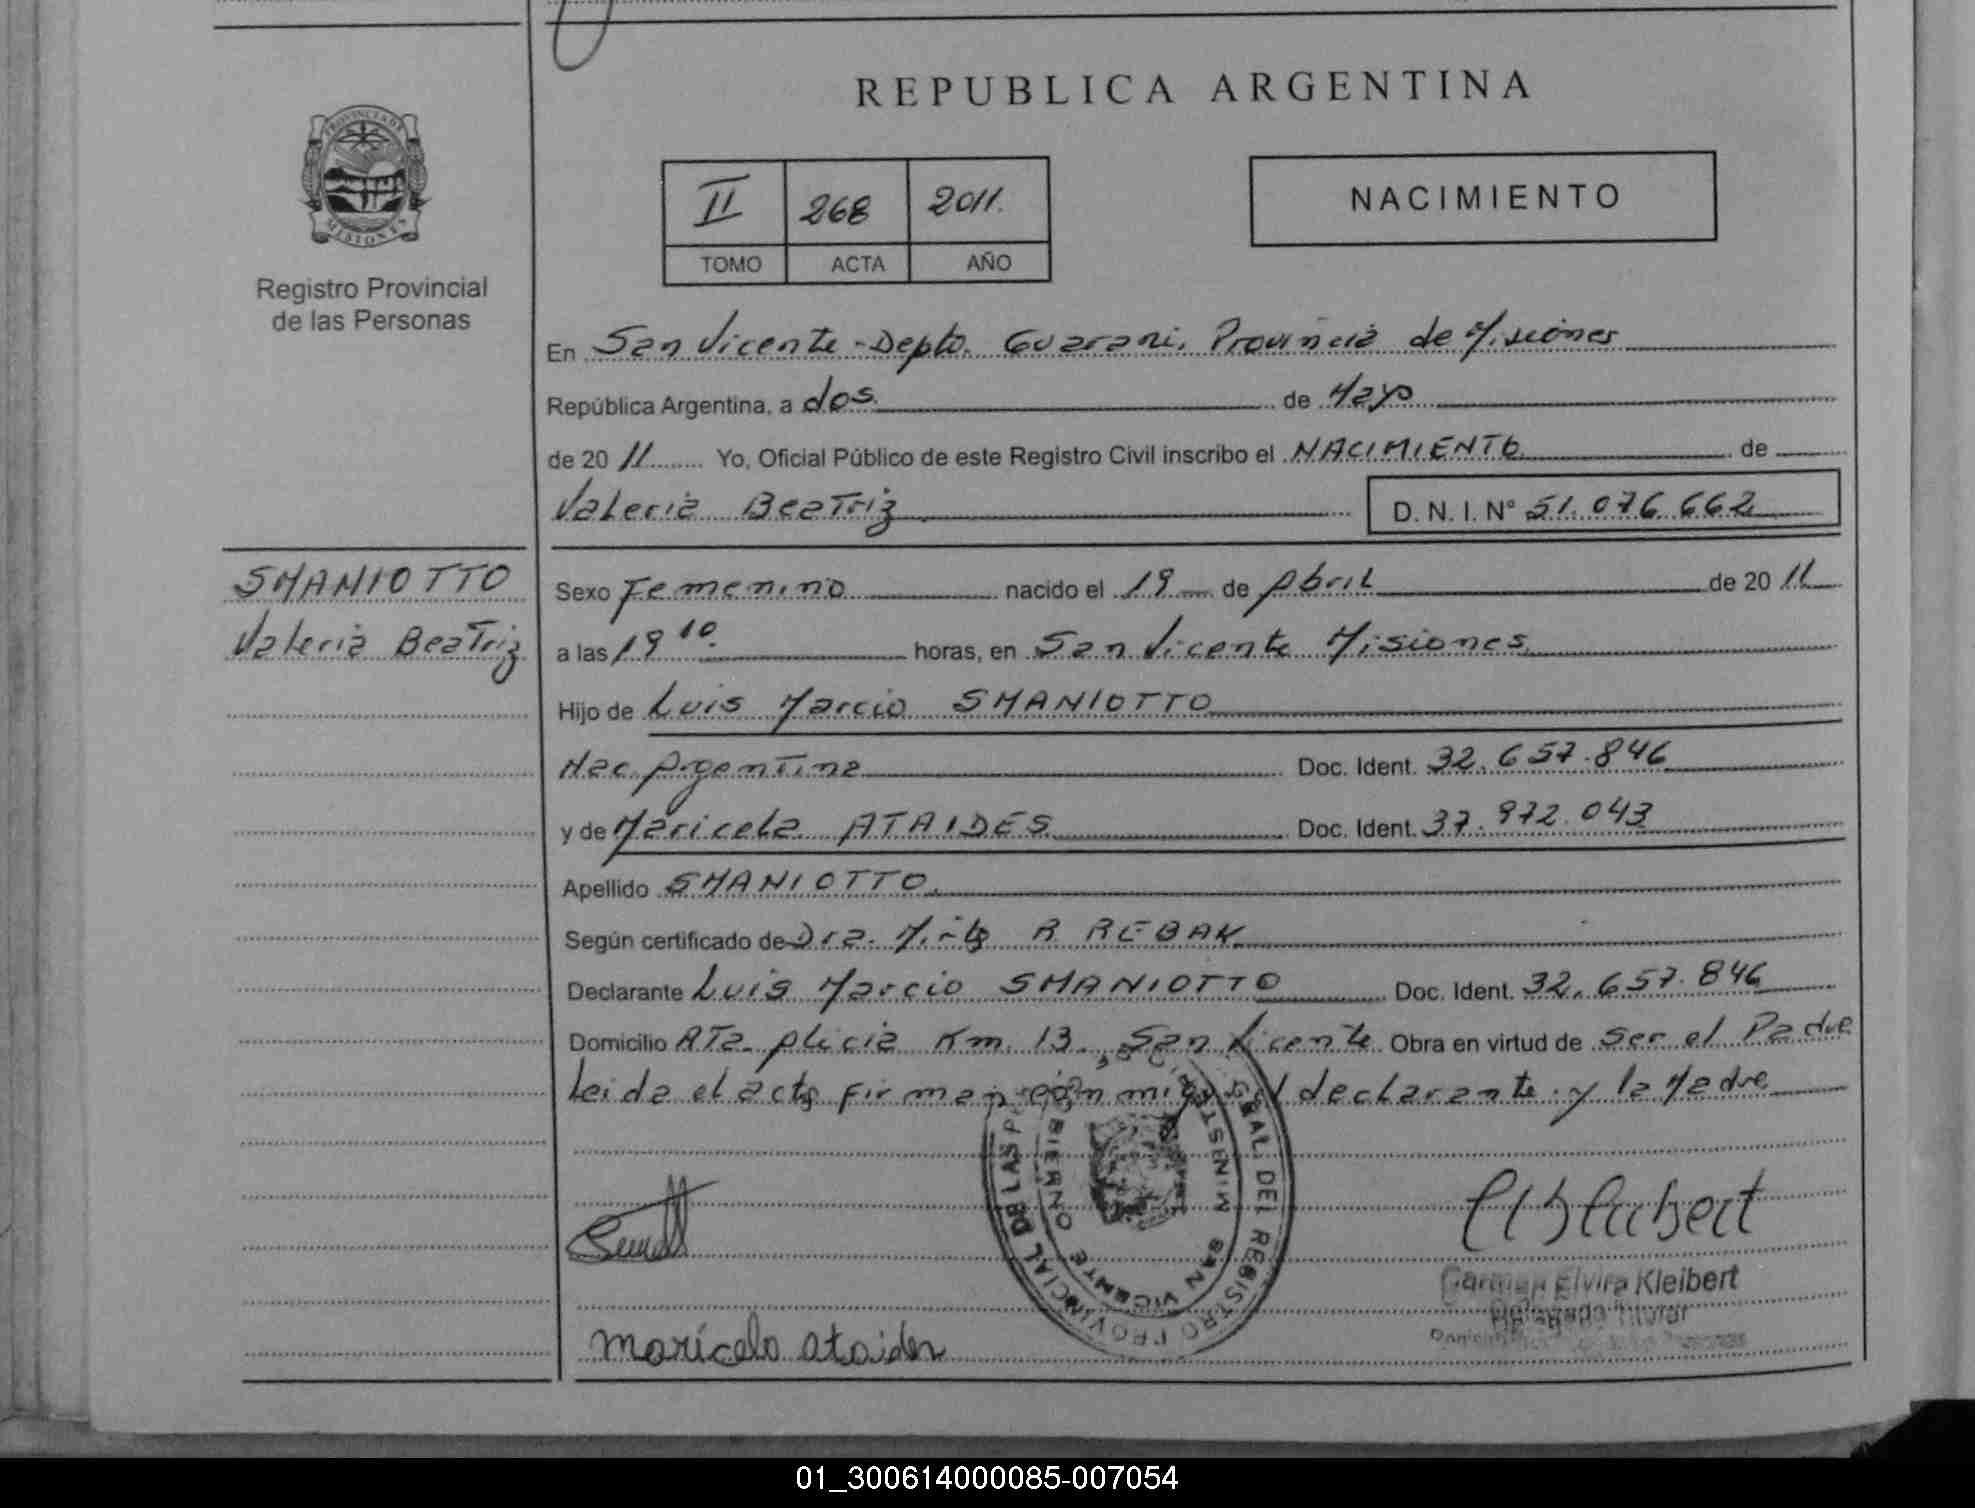 REPUBLICA ARGENTINA
PROVINCIA DE MISIONES
Registro Provincial
de las Personas
II 268 2011.
TOMO ACTA AÑO
NACIMIENTO
En San Vicente - Depto. Guarani. Provincia de Misiones
República Argentina, a dos. de Mayo
de 20 11 Yo, Oficial Público de este Registro Civil inscribo el NACIMIENTO de
Valeria Beatriz D. N. I. Nº 51.076.662
SMANIOTTO
Valeria Beatriz
Sexo Femenino nacido el 19 de Abril de 20 11
a las 19 10. horas, en San Vicente Misiones
Hijo de Luis Marcio SMANIOTTO
Nac. Argentina Doc. Ident. 32.657.846
y de Maricela ATAIDES Doc. Ident. 37.972.043
Apellido SMANIOTTO.
Según certificado de Dra. R REBAK
Declarante Luis Marcio SMANIOTTO Doc. Ident. 32.657.846
Domicilio RTa. Alicia Km. 13., San Vicente Obra en virtud de ser el Padre
Leida el acta firman con migo el declarante y la Madre
GRAL. DEL REGISTRO PROVINCIAL DE LAS
MINISTE SAN VICENTE
Carmen Elvira Kleibert
Delegada Titular
maricela ataides
01_300614000085-007054